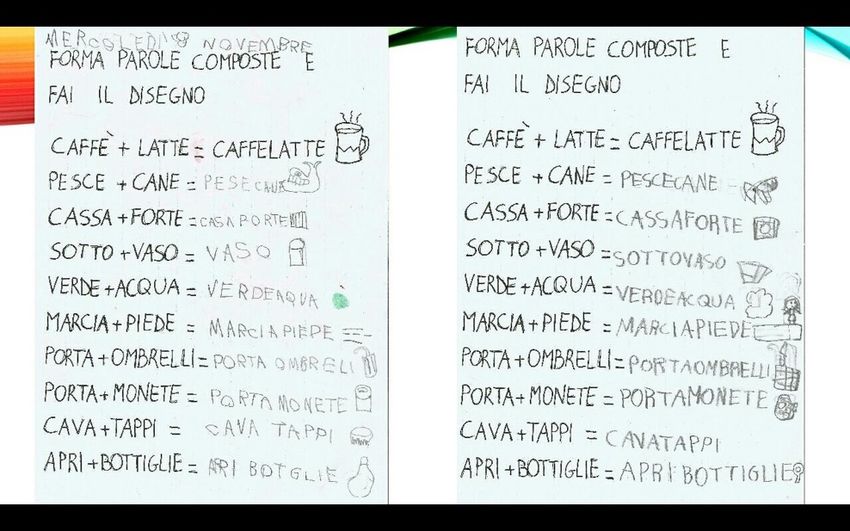 MERCOLEDÌ 8 NOVEMBRE
FORMA PAROLE COMPOSTE E
FAI IL DISEGNO
CAFFÈ + LATTE = CAFFELATTE
PESCE + CANE = PESECANE
CASSA + FORTE = CASAPORTE
SOTTO + VASO = VASO
VERDE + ACQUA = VERDEAQUA
MARCIA + PIEDE = MARCIAPIEDE
PORTA + OMBRELLI = PORTA OMBRELI
PORTA + MONETE = PORTA MONETE
CAVA + TAPPI = CAVA TAPPI
APRI + BOTTIGLIE = APRI BOTGLIE
FORMA PAROLE COMPOSTE E
FAI IL DISEGNO
CAFFÈ + LATTE = CAFFELATTE
PESCE + CANE = PESCECANE
CASSA + FORTE = CASSAFORTE
SOTTO + VASO = SOTTOVASO
VERDE + ACQUA = VERDEACQUA
MARCIA + PIEDE = MARCIAPIEDE
PORTA + OMBRELLI = PORTAOMBRELLI
PORTA + MONETE = PORTAMONETE
CAVA + TAPPI = CAVATAPPI
APRI + BOTTIGLIE = APRIBOTTIGLIE